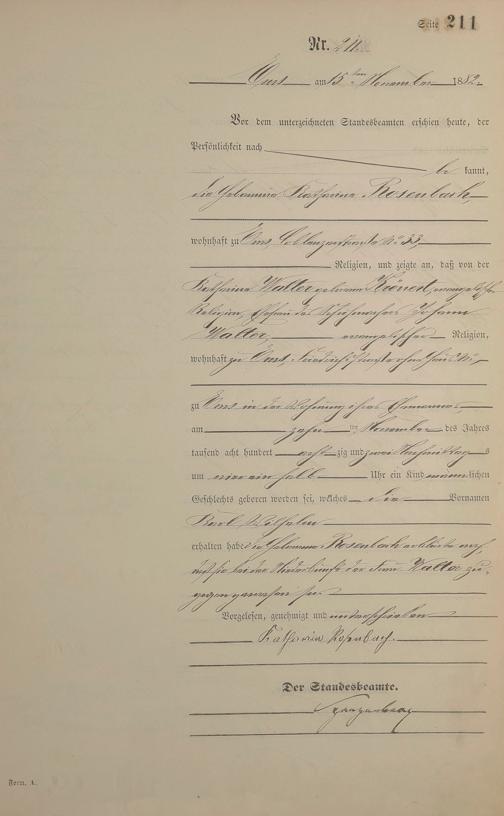 Seite 211
Nr. 211
Ems am 15ten November 1882
Vor dem unterzeichneten Standesbeamten erschien heute, der
Persönlichkeit nach
be kannt,
die Hebamme Katharina Rosenbach
wohnhaft zu Ems, Coblenzerstraße No 33,
Religion, und zeigte an, daß von der
Katharina Walter geborenen evangelischer
Religion, Ehefrau des Schuhmachers Johann
Walter, evangelischer Religion,
wohnhaft zu Ems, Friedrichstraße ohne Haus No,
zu Ems in der Wohnung ihres Ehemannes
am zehnten November des Jahres
tausend acht hundert achtzig und zwei Nachmittags
um ein halb Uhr ein Kind männlichen
Geschlechts geboren worden sei, welches die Vornamen
Karl Wilhelm
erhalten habe die Hebamme Rosenbach erklärte noch,
daß sie bei der Niederkunft der Frau Walter zu-
gegen gewesen sei.
Vorgelesen, genehmigt und unterschrieben
Katharina Rosenbach.
Der Standesbeamte.
Form. A.